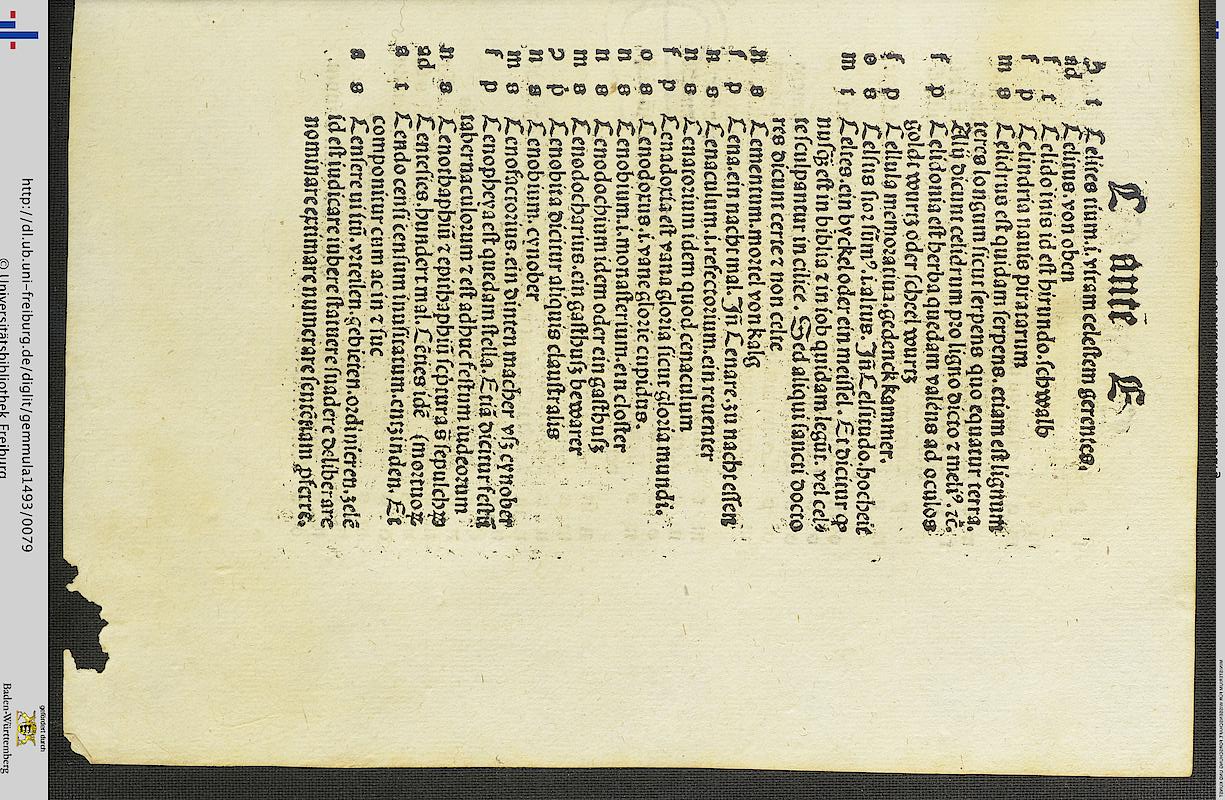 C ante E
h t Celites tium .i. vitam celestem gerentes.
ad Celitus. von oben
f t Celido inis id est hirundo. schwalb
f p Celindria nauis piratarum
m s Celidrus est quidam serpens. etiam est lignum
teres longum sicut serpens quo equatur terra.
Alij dicunt celidrum pro ligno dicto ⁊ meliꝰ. ⁊c̄.
f p Celidonia est herba quedam valēns ad oculos
goldt wurtz oder scheel wurtz
f p Cellula memoratiua. gedenck kammer.
o s Celsus sior simꝰ .i. altus. Jn̄ Celsitudo. hocheit
m t Celtes. ein byckel oder ein meissel. Et dicitur ꝙ
nusq̄ȝ est in biblia ⁊ in iob quidam legūt. vel celte
tesculpantur in silice. Sed aliqui sancti docto
res dicunt certe ⁊ non celte
n s Cementum. mortel von kalg
f p Cena. ein nacht mal. Jn̄ Cenare. zu nacht essen
n s Cenaculum .i. refectorium. ein reuenter
n s Cenatorium idem quod cenaculum
f p Cenadoxia est vana gloria sicut gloria mundi.
o s Cenodoxus .i. vane glorie cupidus.
n s Cenobium .i. monasterium. ein closter
n s Cenodochium idem oder ein gasthuß
m s Cenodocharius. ein gasthuß bewarer
ꝯ p Cenobita dicitur aliquis claustralis
n s Cenobium. cynober
m s Cenofactorius. ein dinten macher vß cynober
f p Cenopheya est quedam stella. Etiā dicitur festū
tabernaculorum ⁊ est adhuc festum iudeorum
n s Cenothaphiū ⁊ epithaphiū scp̄turas sepulchrꝝ
ad Centies. hundert mal. Cēties idē (mortuoꝝ
a t Cendo censi censum inusitatum. entzinden. Et
componitur cum ac in ⁊ suc
a s Censere ui tū. vrteilen. gebieten. ordinieren. zelē
id est iudicare iubere statuere suadere deliberare
nominare extimare numerare sentētiam ꝓferre.
http://dl.ub.uni-freiburg.de/diglit/gemmula1493/0079
© Universitätsbibliothek Freiburg
gefördert durch
Baden-Württemberg